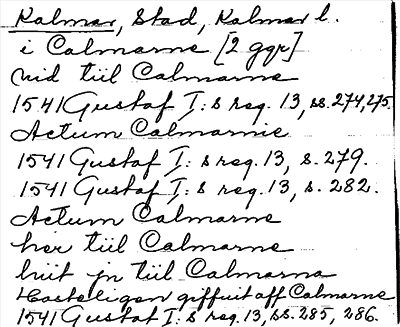 Kalmar, Stad, Kalmar l.
i Calmarne [2 ggr]
vid tiil Calmarne
1541 Gustaf I:s reg. 13, ss. 274, 275.
Actum Calmarnie
1541 Gustaf I:s reg. 13, s. 279.
1541 Gustaf I:s reg. 13, s. 282.
Actum Calmarne
her tiil Calmarne
hiit jn tiil Calmarna
Hasteligen giffuit aff Calmarne
1541 Gustaf I:s reg. 13, ss. 285, 286.